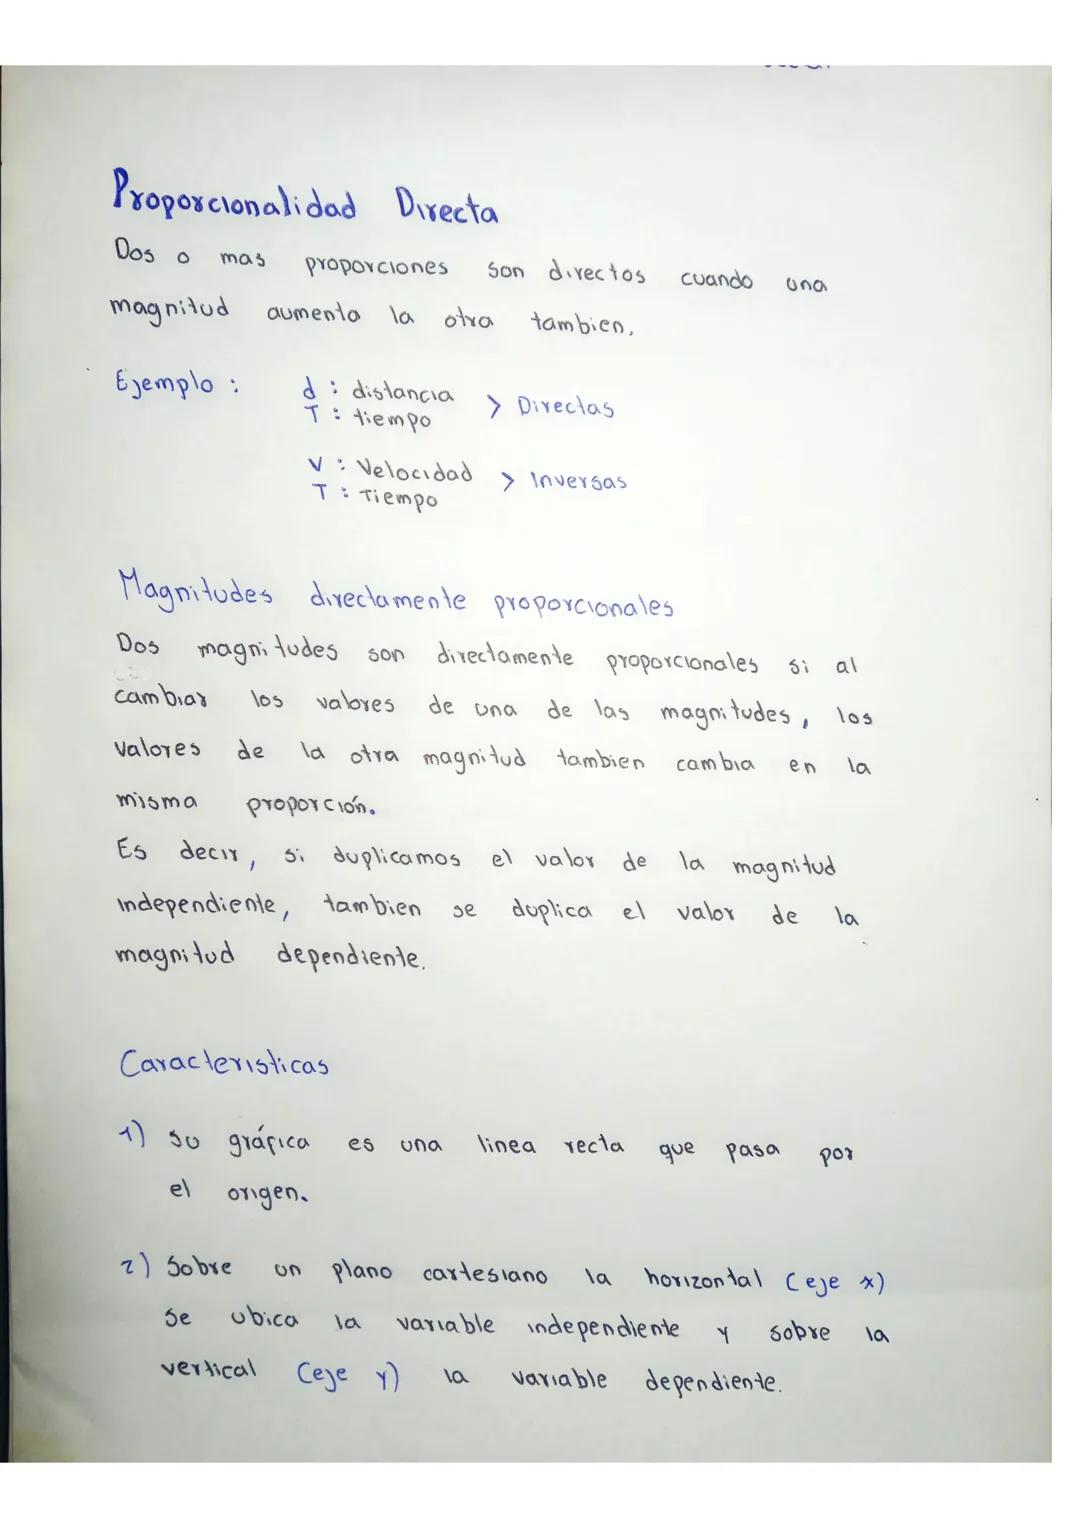 Proporcionalidad Directa
Dos o mas proporciones son directos cuando una
magnitud aumenta la otra tambien.
Ejemplo :
d : distancia
T : tiempo
> Directas
V : Velocidad
T : Tiempo
> Inversas
Magnitudes directamente proporcionales
Dos magnitudes son directamente proporcionales si al
cambiar los valores de una de las magnitudes, los
valores de la otra magnitud tambien cambia en la
misma proporción.
Es decir, si duplicamos el valor de la magnitud
independiente, tambien se duplica el valor de la
magnitud dependiente.
Caracteristicas
1) su gráfica es una linea recta que pasa por
el origen.
2) Sobre un plano cartesiano la horizontal (eje x)
se ubica la variable independiente y sobre la
vertical (eje y) la variable dependiente.